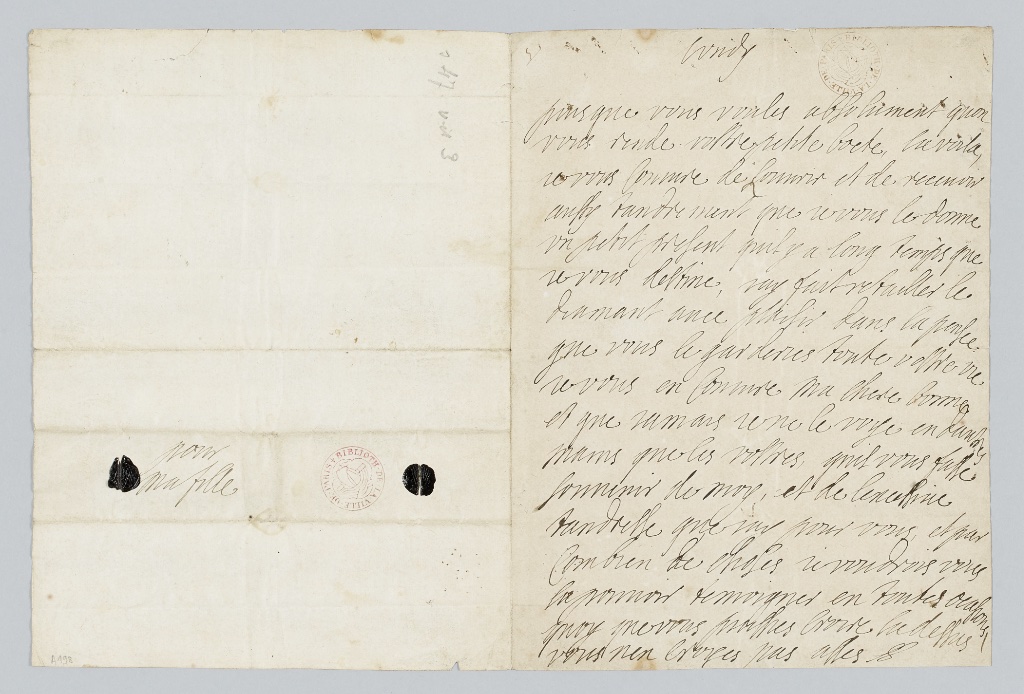 pour
ma fille
BIBLIOTH
DE LA VILLE
A198
lundy
puis que vous voules absolument quon
vous rende vostre petite boete, la voila,
ie vous coniure de louurir et de receuoir
aussy tandrement que ie vous le donne
vn petit present quil y a long temps que
ie vous destine, iay fait retailler le
diamant auec plaisir dans la pensee
que vous le garderies toute vostre vie
ie vous en coniure ma chere bonne
et que iamais ie ne le voye en dautres
mains que les vostres, quil vous fasse
souuenir de moy, et de lexcessiue
tandresse que iay pour vous, et par
combien de choses ie voudrois vous
la pouuoir temoigner en toutes ocasions
quoy que vous puissies croire la dessus
vous nen croyes pas asses